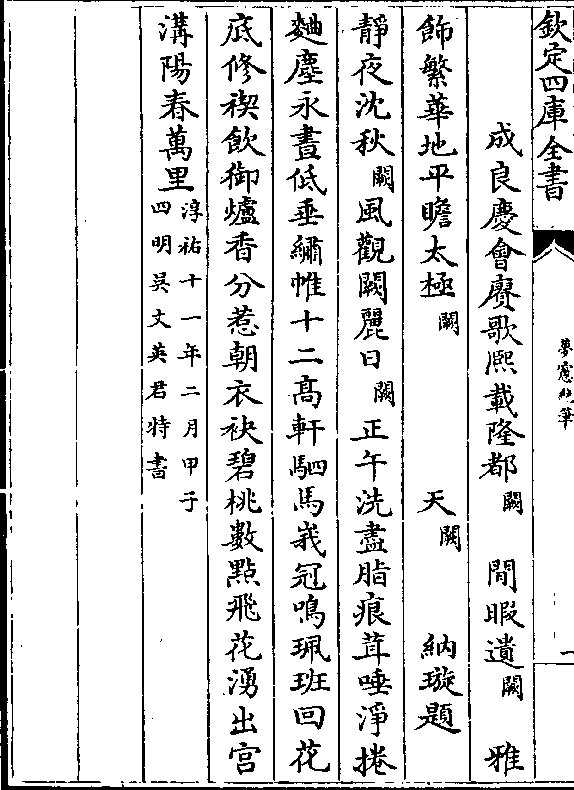 欽定四庫全書
夢窻絶筆
一
成良慶會賡歌熈載隆都闕 閒暇遺闕 雅
飾繁華地平瞻太極闕 天闕 納璇題
静夜沈秋闕風觀闕麗日闕正午洗盡脂痕茸唾淨捲
麯塵永晝低垂繡帷十二髙軒駟馬峩冠鳴珮班回花
底修禊飲御爐香分惹朝衣袂碧桃數點飛花湧出宫
溝陽春萬里
淳祐十一年二月甲子
四明吳文英君特書